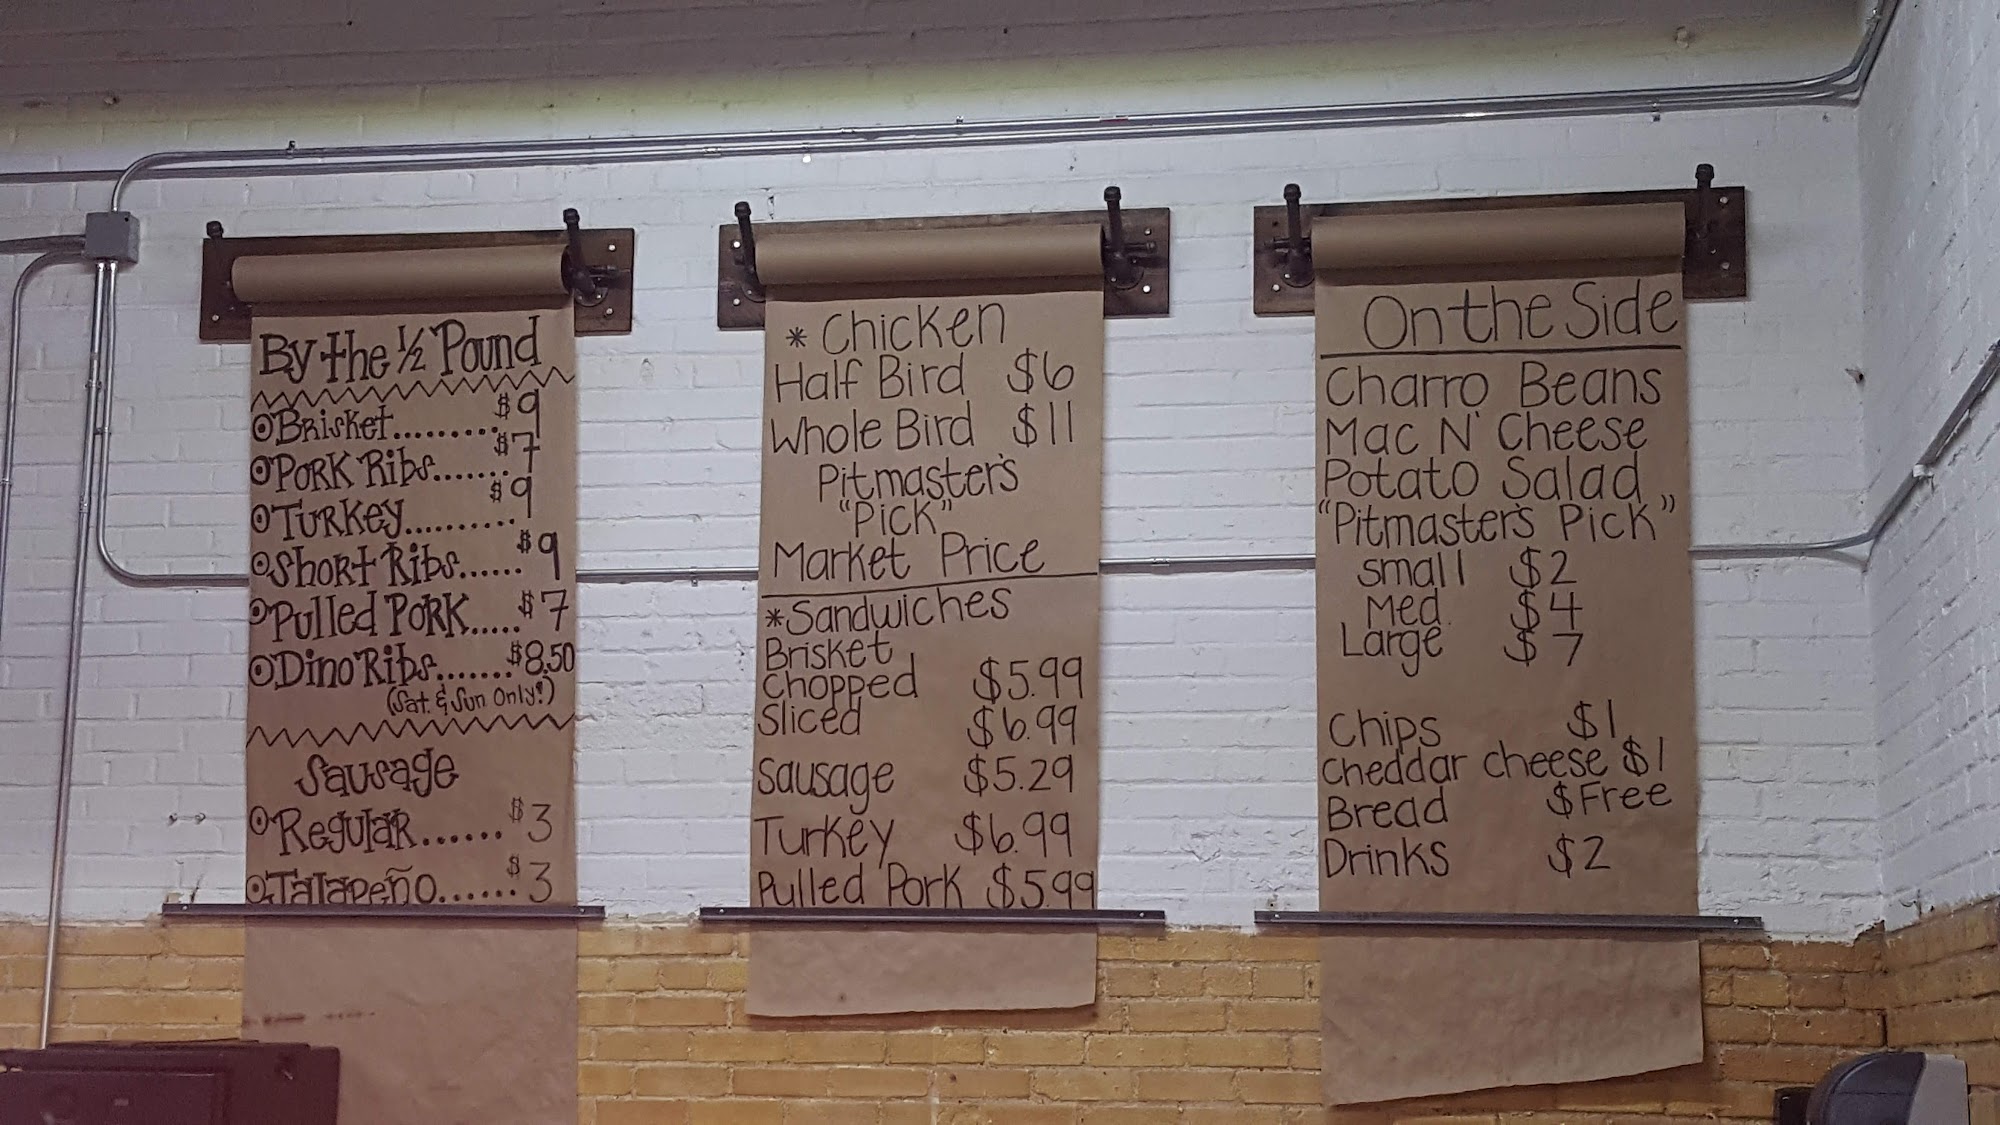 By the 1/2 Pound
Brisket.........$9
Pork Ribs......$7
Turkey.........$9
Short Ribs......$9
Pulled Pork.....$7
Dino Ribs.......$8.50
(Sat. & Sun Only!)
Sausage
Regular......$3
Jalapeño......$3
* Chicken
Half Bird $6
Whole Bird $11
Pitmaster's
"Pick"
Market Price
*Sandwiches
Brisket
Chopped $5.99
Sliced $6.99
Sausage $5.29
Turkey $6.99
Pulled Pork $5.99
On the Side
Charro Beans
Mac N' Cheese
Potato Salad
"Pitmaster's Pick"
Small $2
Med. $4
Large $7
Chips $1
Cheddar cheese $1
Bread $Free
Drinks $2